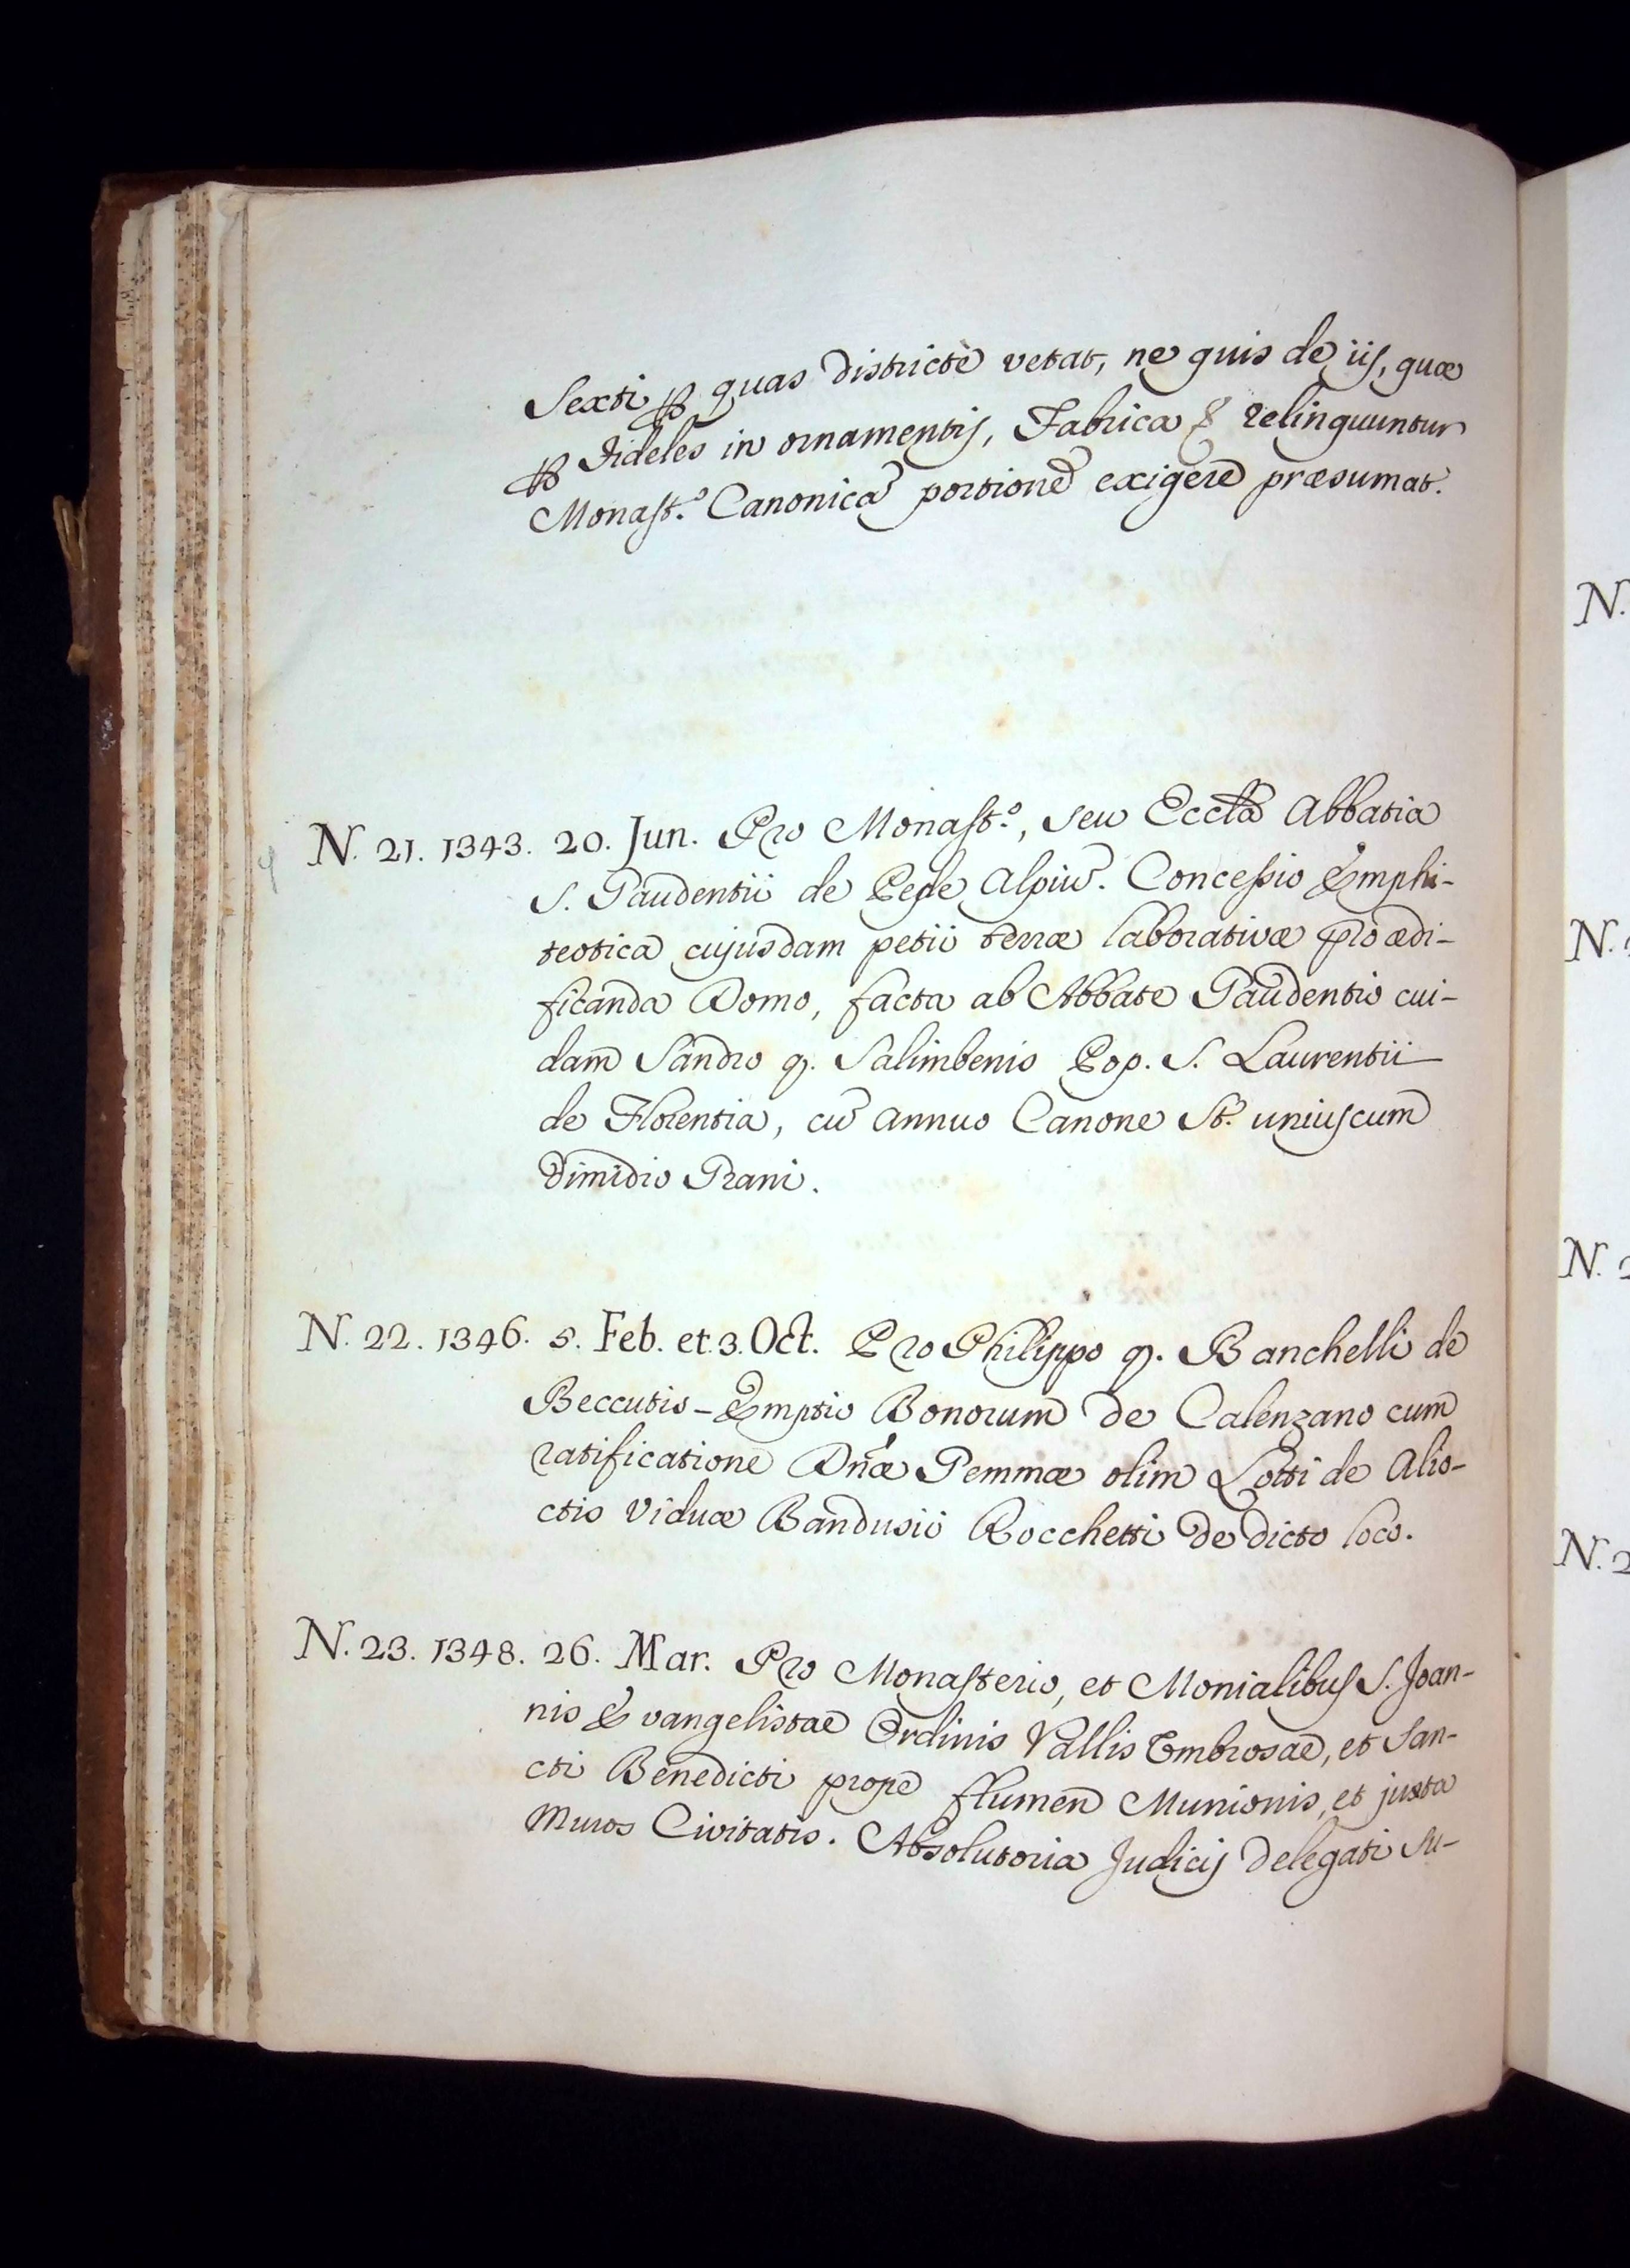 Sexti ꝑ quas districtè vetat, ne quis de iis, quæ
ꝑ Fideles in ornamentis, Fabrica & relinquuntur
Monast.º Canonicã portionẽ exigere præsumat.
N. 21. 1343. 20. Jun. Pro Monast.º, seu Eccla Abbatia
S. Gaudentii de Pede Alpiũ. Concessio Emphi-
teotica cujusdam petii terræ laborativæ pro ædi-
ficanda Domo, facta ab Abbate Gaudentio cui-
dam Sandro q. Salimbenis Pop. S. Laurentii
de Florentia, cũ annuo Canone St. unius cum
dimidio Grani.
N. 22. 1346. 5. Feb. et 3. Oct. Pro Philippo q. Banchelli de
Beccutis - Emptio Bonorum de Calenzano cum
ratificatione Dnæ Gemmæ olim Lotti de Alio-
ctis Viduæ Bandusii Rocchetti de dicto loco.
N. 23. 1348. 26. Mar. Pro Monasterio, et Monialibus S. Joan-
nis Evangelistae Ordinis Vallis Umbrosae, et San-
cti Benedicti prope flumen Munionis, et juxta
Muros Civitatis. Absolutoria Judicis Delegati su-
N.
N.
N. 2
N. 2